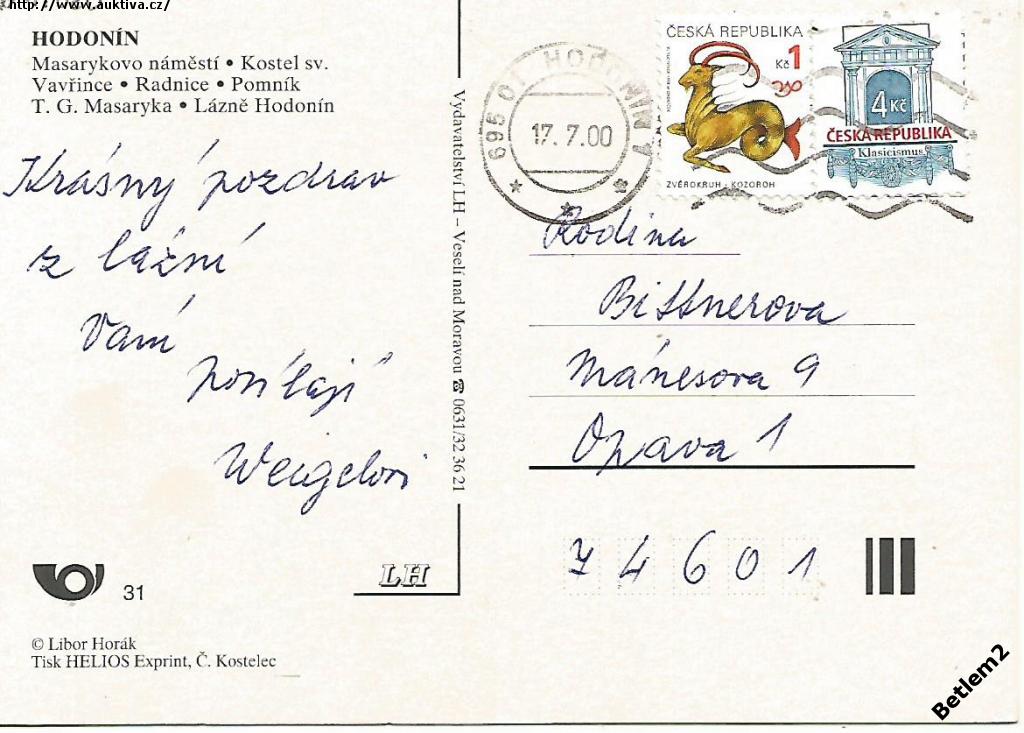 http://www.auktiva.cz/
HODONÍN
Masarykovo náměstí • Kostel sv.
Vavřince • Radnice • Pomník
T. G. Masaryka • Lázně Hodonín
Krásný pozdrav
z lázní
Vám
posílají
Weigelovi
31
© Libor Horák
Tisk HELIOS Exprint, Č. Kostelec
Vydavatelství LH – Veselí nad Moravou ☎ 0631/32 36 21
LH
695 01 HODONÍN 1
17.7.00
ČESKÁ REPUBLIKA
Kč 1
ZVĚROKRUH - KOZOROH
4 Kč
ČESKÁ REPUBLIKA
Klasicismus
Rodina
Bittnerova
Mánesova 9
Opava 1
74601
Betlem2